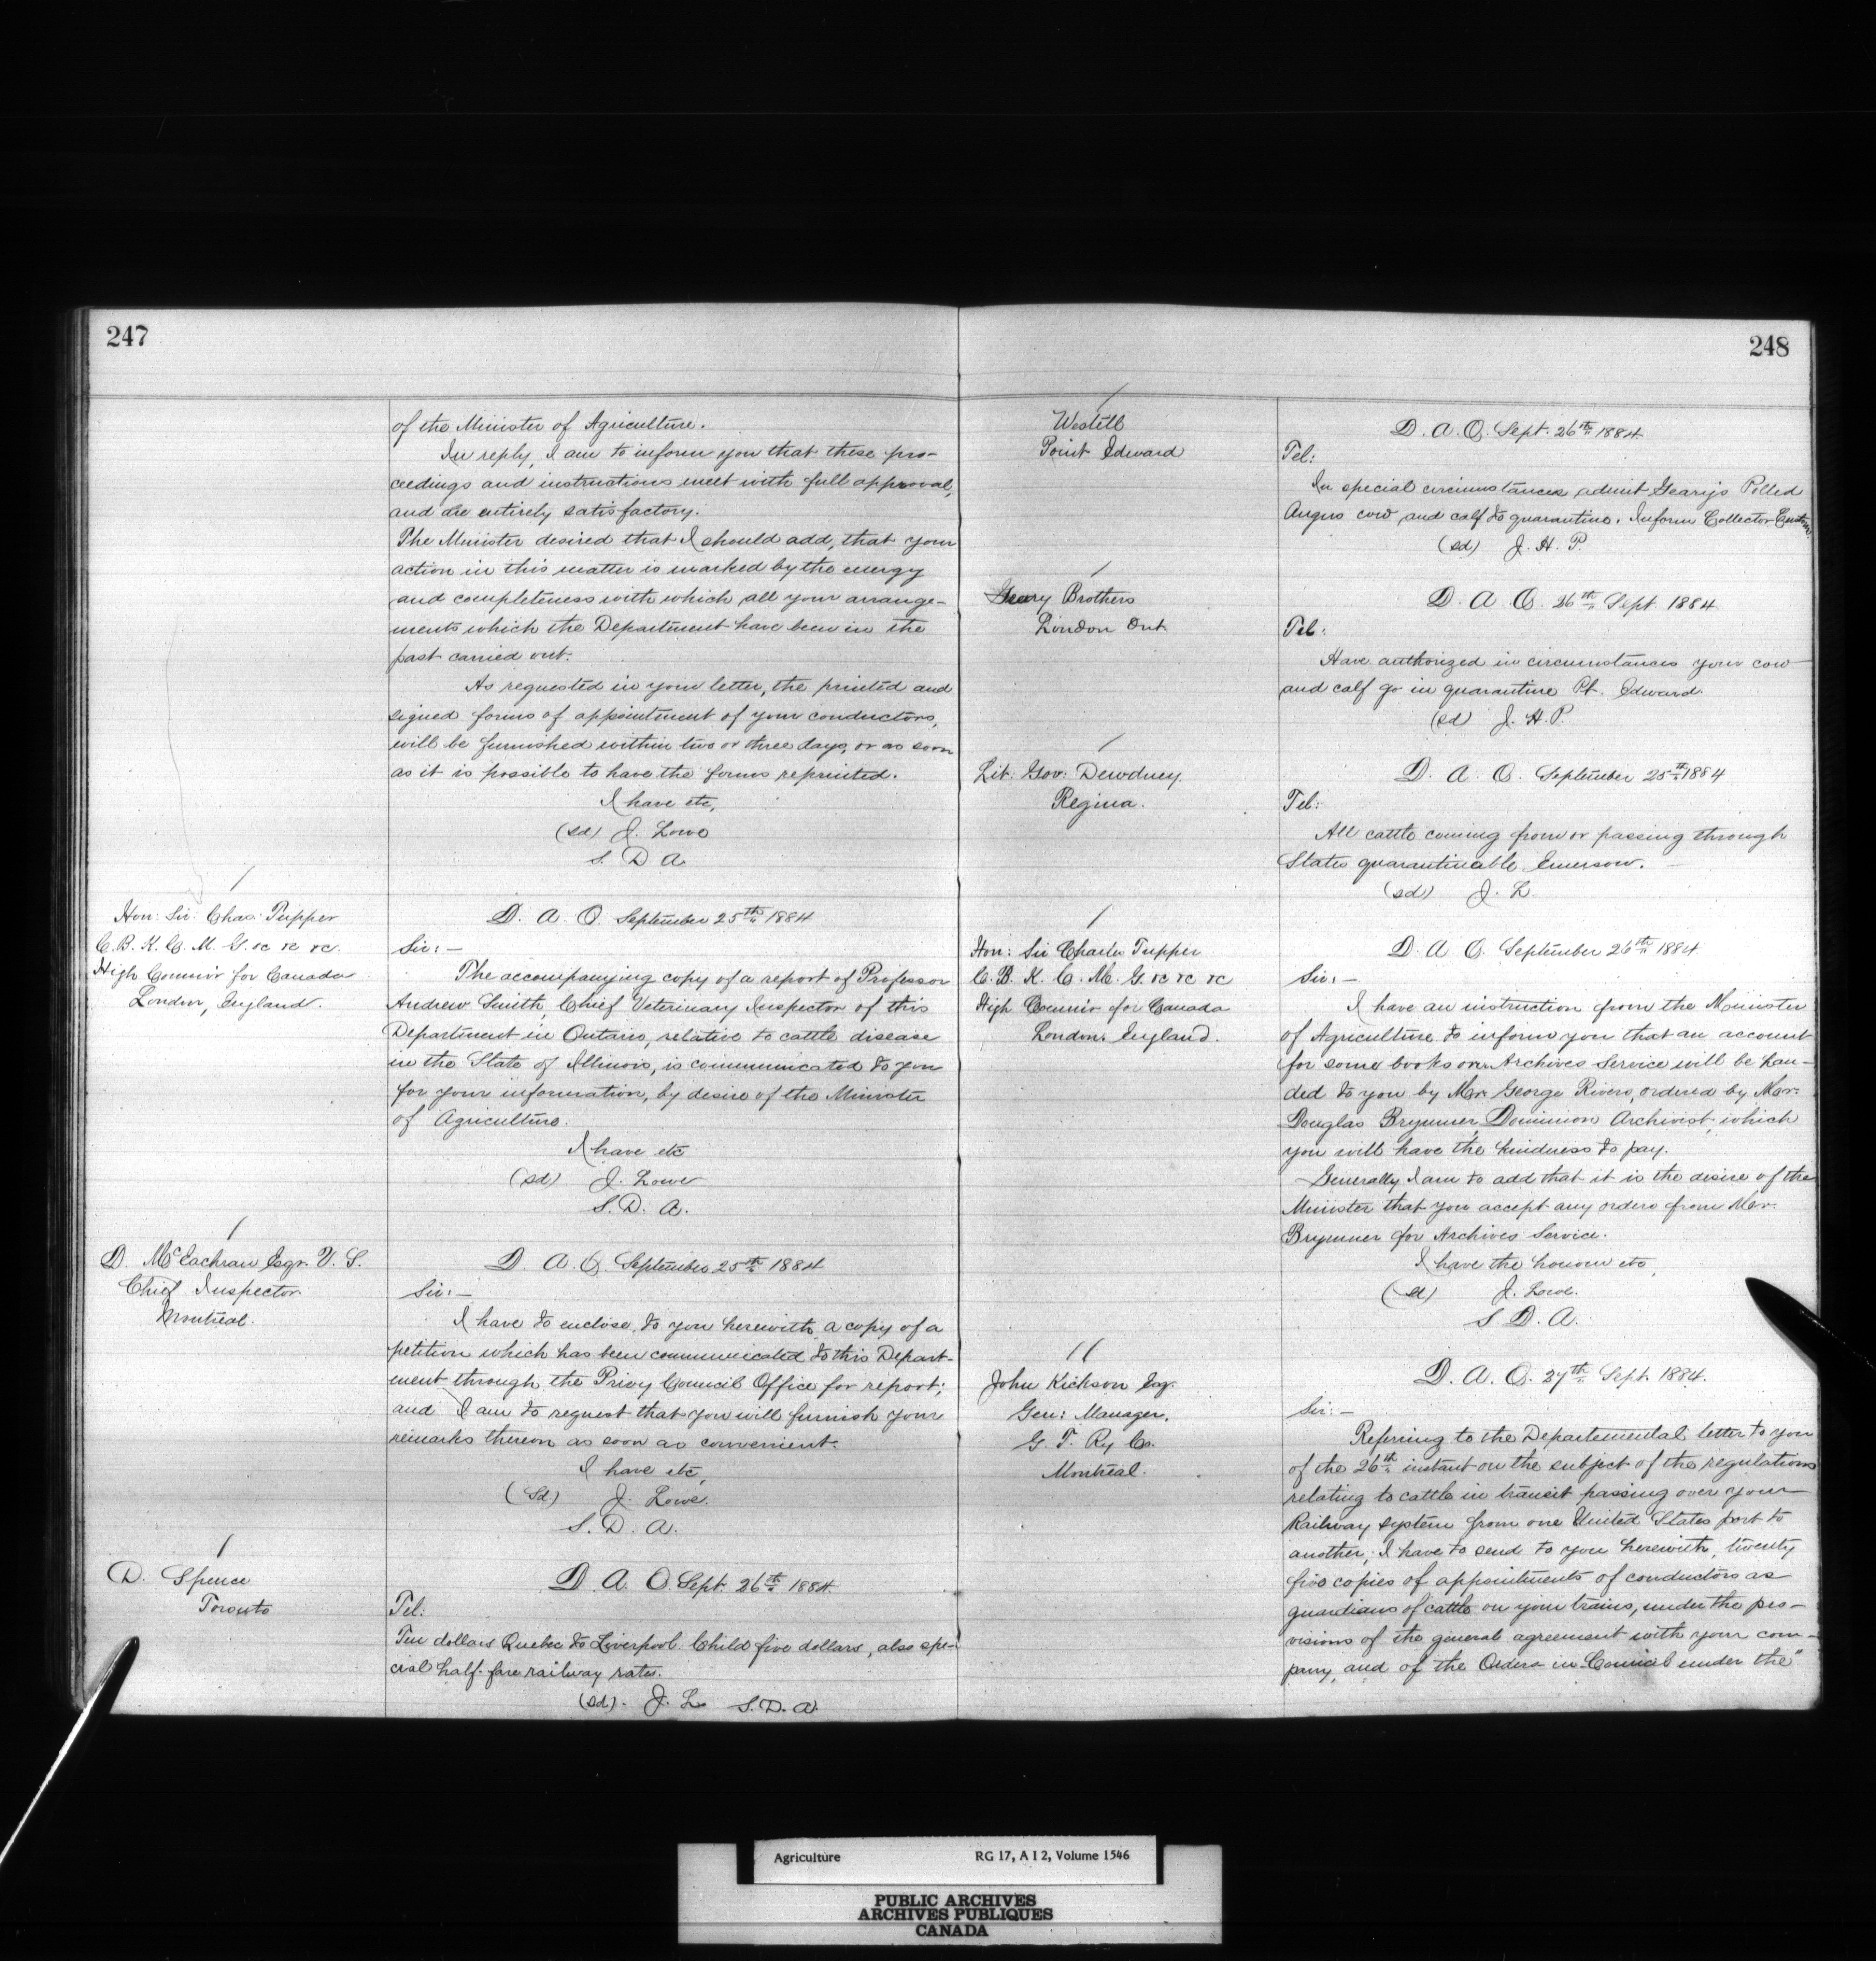 247
of the Minister of Agriculture.
In reply, I am to inform you that these pro-
ceedings and instructions meet with full approval,
and are entirely satisfactory.
The Minister desired that I should add, that your
action in this matter is marked by the energy
and completeness with which all your arrange-
ments which the Department have been in the
past carried out.
As requested in your letter, the printed and
signed forms of appointment of your conductors,
will be furnished within two or three days, or as soon
as it is possible to have the forms reprinted.
I have etc,
(sd) J. Lowe
S. D A.
Hon: Sir. Chas: Tupper
C. B. K. C. M. G. &c &c &c.
High Commir for Canada
London, England.
D. A. O. September 25th 1884
Sir:—
The accompanying copy of a report of Professor
Andrew Smith, Chief Veterinary Inspector of this
Department in Ontario, relative to cattle disease
in the State of Illinois, is communicated to you
for your information, by desire of the Minister
of Agriculture.
I have etc
(sd) J. Lowe
S. D. A.
D. McEachran Esqr. V. S.
Chief Inspector.
Montreal.
D. A. O. September 25th 1884
Sir:—
I have to enclose to you herewith a copy of a
petition which has been communicated to this Depart-
ment through the Privy Council Office for report;
and I am to request that you will furnish your
remarks thereon as soon as convenient.
I have etc,
(Sd) J. Lowe.
S. D. A.
D. Spence
Toronto
D. A. O. Sept. 26th 1884.
Tel:
Ten dollars Quebec to Liverpool. Child five dollars, also spe-
cial half-fare railway rates.
(sd). J. L. S. D. A.
248
Westell
Point Edward
D. A. O. Sept. 26th 1884
Tel:
In special circumstances admit Geary's Polled
Angus cow and calf to quarantine. Inform Collector Customs.
(sd) J. H. P.
Geary Brothers
London Ont.
D. A. O. 26th Sept. 1884
Tel:
Have authorized in circumstances your cow
and calf go in quarantine Pt. Edward.
(sd J. H. P.
Lit: Gov: Dewdney.
Regina.
D. A. O. September 25th 1884
Tel:
All cattle coming from or passing through
States quarantineable Emerson.
(sd) J. L.
Hon: Sir Charles Tupper
C. B. K. C. M. G. &c &c &c
High Commir for Canada
London. England.
D. A O. September 26th 1884.
Sir:—
I have an instruction from the Minister
of Agriculture to inform you that an account
for some books on Archives Service will be han-
ded to you by Mr. George Rivers, ordered by Mr.
Douglas Brymner, Dominion Archivist, which
you will have the kindness to pay.
Generally I am to add that it is the desire of the
Minister that you accept any orders from Mr.
Brymner for Archives Service.
I have the honour etc,
(sd) J. Lowe.
S. D. A.
John Hickson Esq.
Gen: Manager.
G. T. Ry Co.
Montreal.
D. A. O. 27th Sept. 1884.
Sir:—
Referring to the Departemental letter to you
of the 26th instant on the subject of the regulations
relating to cattle in transit passing over your
Railway system from one United States port to
another, I have to send to you herewith, twenty
five copies of appointments of conductors as
guardians of cattle on your trains, under the pro-
visions of the general agreement with your com-
pany, and of the Orders in Council under the"
Agriculture RG 17, A I 2, Volume 1546
PUBLIC ARCHIVES
ARCHIVES PUBLIQUES
CANADA